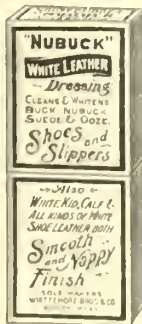 "NUBUCK"
WHITE LEATHER
Dressing
CLEANS & WHITENS
BUCK NUBUCK
SUEDE & OOZE
Shoes and
Slippers
Also
WHITE KID, CALF &
ALL KINDS OF WHITE
SHOE LEATHER BOTH
Smooth
and Nappy
Finish
SOLE MAKERS
WHITTEMORE BROS. & CO.